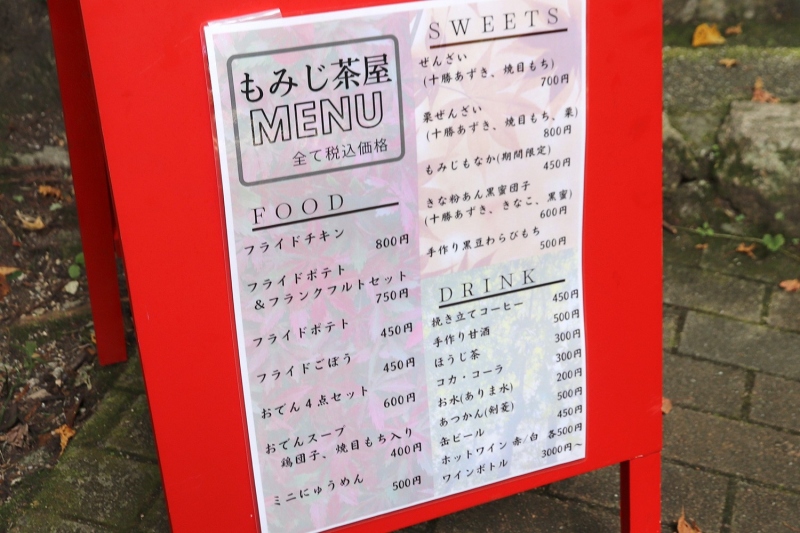 もみじ茶屋
MENU
全て税込価格
FOOD
フライドチキン 800円
フライドポテト
&フランクフルトセット
750円
フライドポテト 450円
フライドごぼう 450円
おでん4点セット 600円
おでんスープ
鶏団子、焼目もち入り
400円
ミニにゅうめん 500円
SWEETS
ぜんざい
(十勝あずき、焼目もち)
700円
栗ぜんざい
(十勝あずき、焼目もち、栗)
800円
もみじもなか(期間限定)
450円
きな粉あん黒蜜団子
(十勝あずき、きなこ、黒蜜)
600円
手作り黒豆わらびもち
500円
DRINK
挽き立てコーヒー 450円
手作り甘酒 500円
ほうじ茶 300円
コカ・コーラ 300円
お水(ありま水) 200円
あつかん(剣菱) 500円
缶ビール 450円
ホットワイン 赤/白 各500円
ワインボトル 3000円~